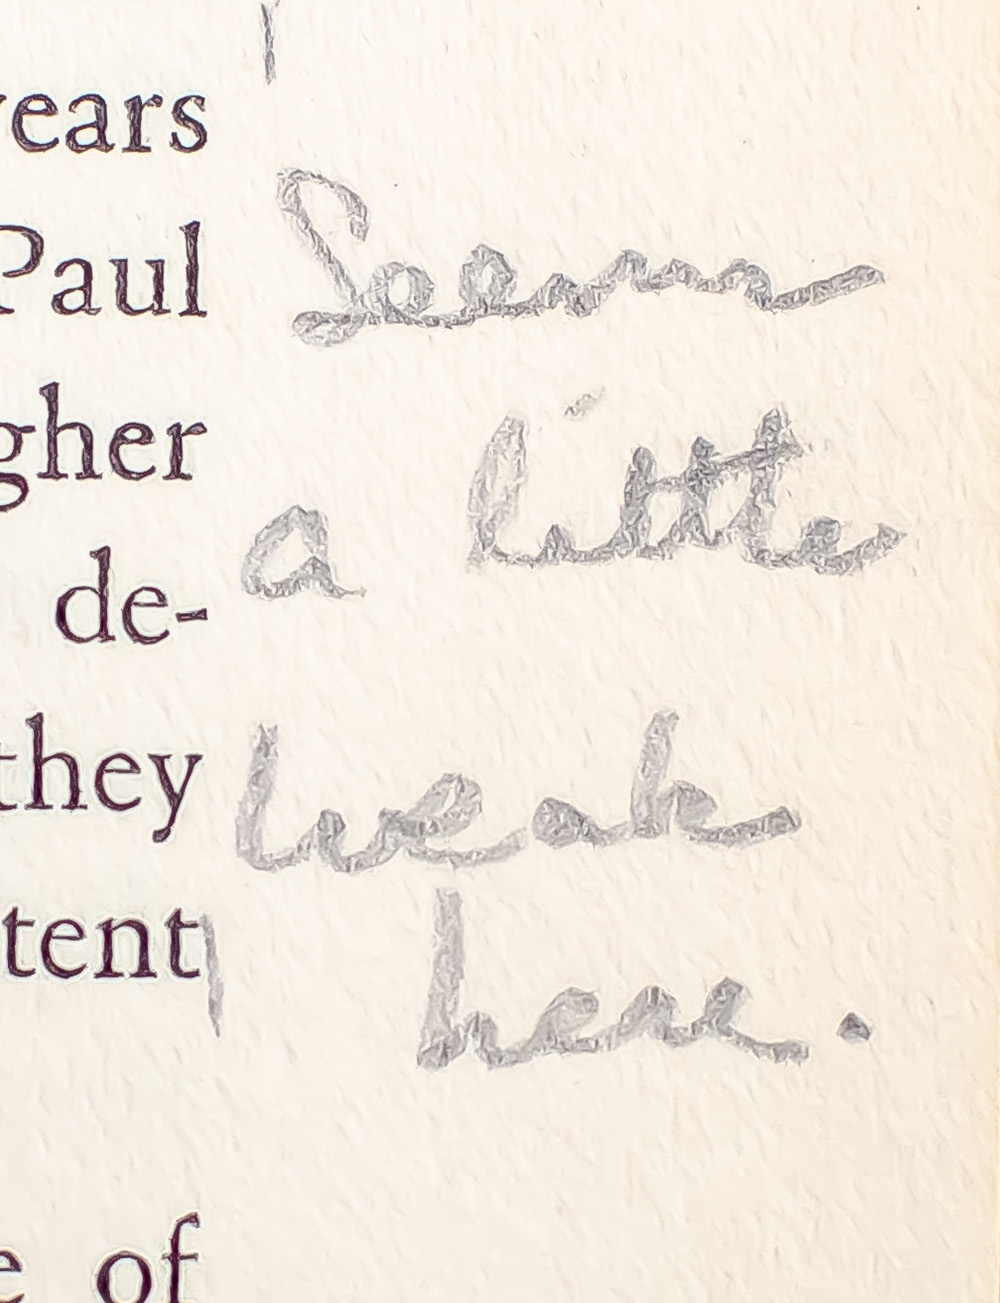 years
Paul
gher
de-
they
tent
e of
Seems
a little
weak
here.